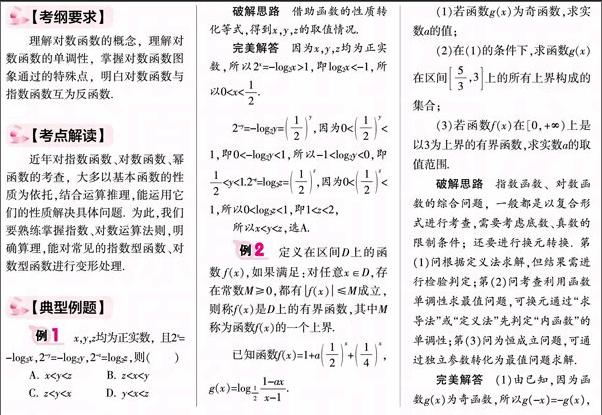 【考纲要求】
理解对数函数的概念，理解对
数函数的单调性，掌握对数函数图
象通过的特殊点，明白对数函数与
指数函数互为反函数.
【考点解读】
近年对指数函数、对数函数、幂
函数的考查，大多以基本函数的性
质为依托，结合运算推理，能运用它
们的性质解决具体问题. 为此，我们
要熟练掌握指数、对数运算法则，明
确算理，能对常见的指数型函数、对
数型函数进行变形处理.
【典型例题】
例1 x,y,z均为正实数，且2ˣ=
-log₂x,2⁻ʸ=-log₂y,2⁻ᶻ=log₂z,则( )
A. x<y<z B. z<x<y
C. z<y<x D. y<x<z
破解思路 借助函数的性质转
化等式，得到x,y,z的取值情况.
完美解答 因为x,y,z均为正实
数，所以2ˣ=-log₂x>1，即log₂x<-1，所
以0<x<1/2.
2⁻ʸ=-log₂y=(1/2)ʸ,因为0<(1/2)ʸ<
1,即0<-log₂y<1,所以-1<log₂y<0,即
1/2<y<1.2⁻ᶻ=log₂z=(1/2)ᶻ,因为0<(1/2)ᶻ<
1,所以0<log₂z<1,即1<z<2,
所以x<y<z,选A.
例2 定义在区间D上的函
数f(x),如果满足:对任意x∈D,存
在常数M≥0,都有|f(x)|≤M成立,
则称f(x)是D上的有界函数,其中M
称为函数f(x)的一个上界.
已知函数f(x)=1+a(1/2)ˣ+(1/4)ˣ,
g(x)=log_{1/2} (1-ax)/(x-1).
(1)若函数g(x)为奇函数,求实
数a的值;
(2)在(1)的条件下,求函数g(x)
在区间[5/3,3]上的所有上界构成的
集合;
(3)若函数f(x)在[0,+∞)上是
以3为上界的有界函数,求实数a的取
值范围.
破解思路 指数函数、对数函
数的综合问题，一般都是以复合形
式进行考查,需要考虑底数、真数的
限制条件；还要进行换元转换. 第
(1)问根据定义法求解,但结果需进
行检验判定;第(2)问考查利用函数
单调性求最值问题,可换元通过“求
导法”或“定义法”先判定“内函数”的
单调性;第(3)问为恒成立问题,可通
过独立参数转化为最值问题求解.
完美解答 (1)由已知,因为函
数g(x)为奇函数,所以g(-x)=-g(x),